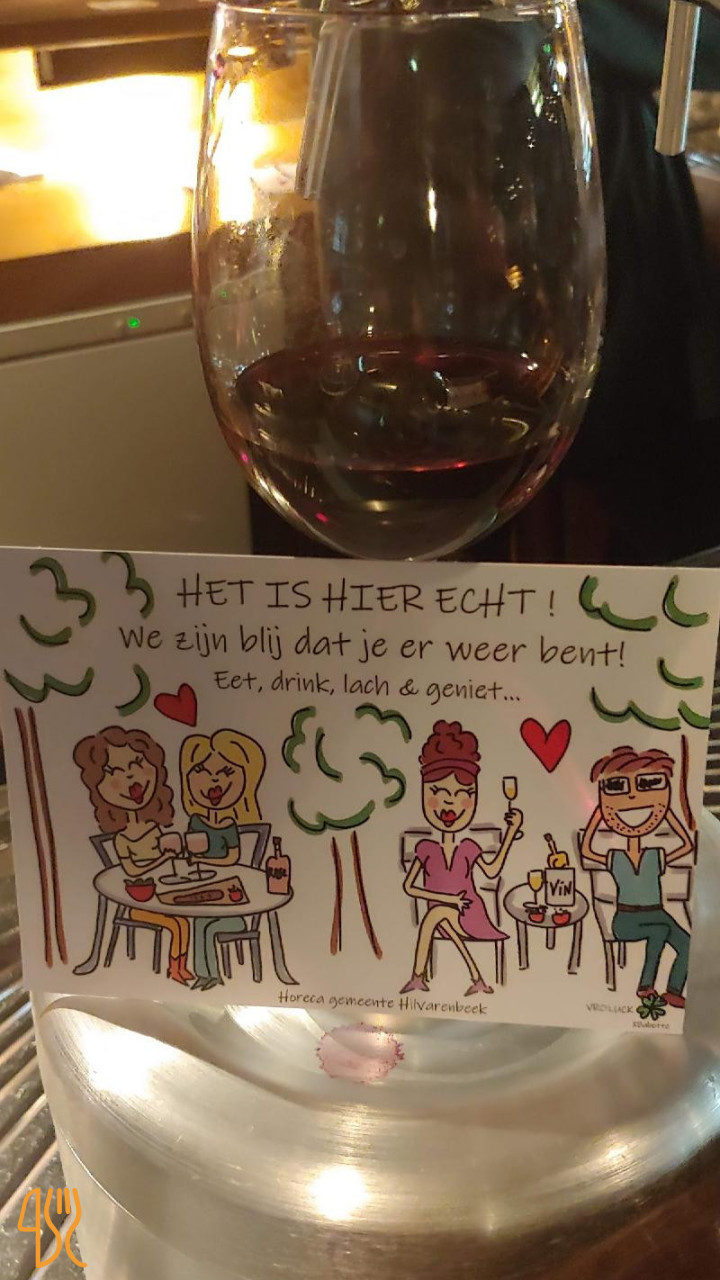 HET IS HIER ECHT!
We zijn blij dat je er weer bent!
Eet, drink, lach & geniet...
ROSÉ
VIN
Horeca gemeente Hilvarenbeek